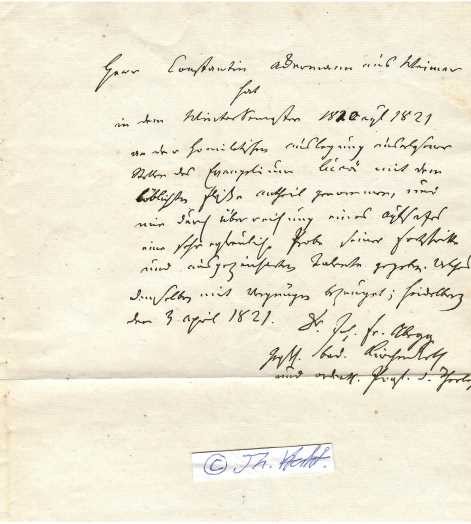 Herr Constantin Ackermann aus Weimar
hat
in dem Wintersemester 1820 auf 1821
an der homiletischen Auslegung auserlesener
Stellen des Evangelium Lucä mit dem
löblichsten Fleiße Antheil genommen, und
mir durch Überreichung eines Aufsatzes
eine sehr erfreuliche Probe seiner Fortschritte
und ausgezeichneten Talente gegeben. Welches
demselben mit Vergnügen bezeuget; Heidelberg
den 3 April 1821. Dr. J. Fr. Abegg
bad. Kirchenrath
und ordentl. Prof. d. Theol.
© Th.